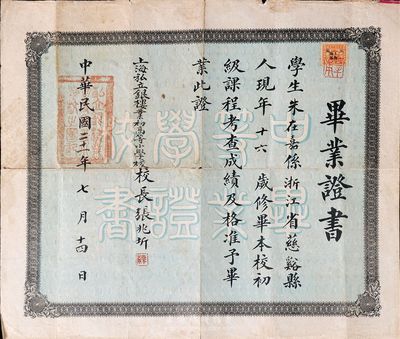 畢業證書
學生朱在善係浙江省慈谿縣
人現年十六歲修畢本校初
級課程考查成績及格准予畢
業此證
上海私立銀樓業初高等小學校校長張兆圻
中華民國二十一年七月十四日
中等學校
畢業證書